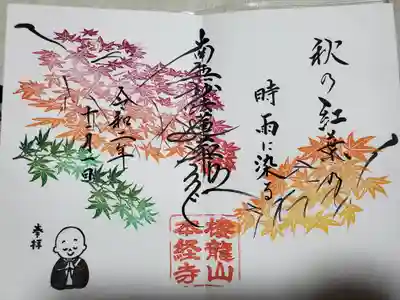 秋乃紅葉の
時雨に染る
南無妙法蓮華経
令和二年
十一月一日
奉拝
本経寺